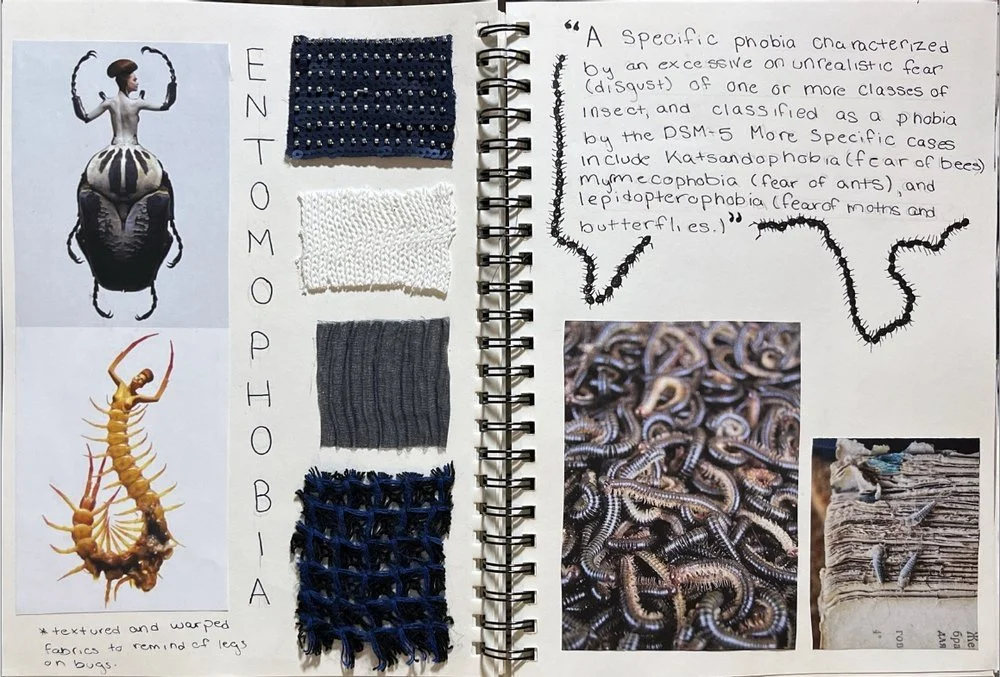 ENTOMOPHOBIA
*textured and warped
fabrics to remind of legs
on bugs.
"A specific phobia characterized
by an excessive on unrealistic fear
(disgust) of one or more classes of
insect, and classified as a phobia
by the DSM-5 More specific cases
include Katsandophobia (fear of bees)
myrmecophobia (fear of ants), and
lepidopterophobia (fear of moths and
butterflies.)"